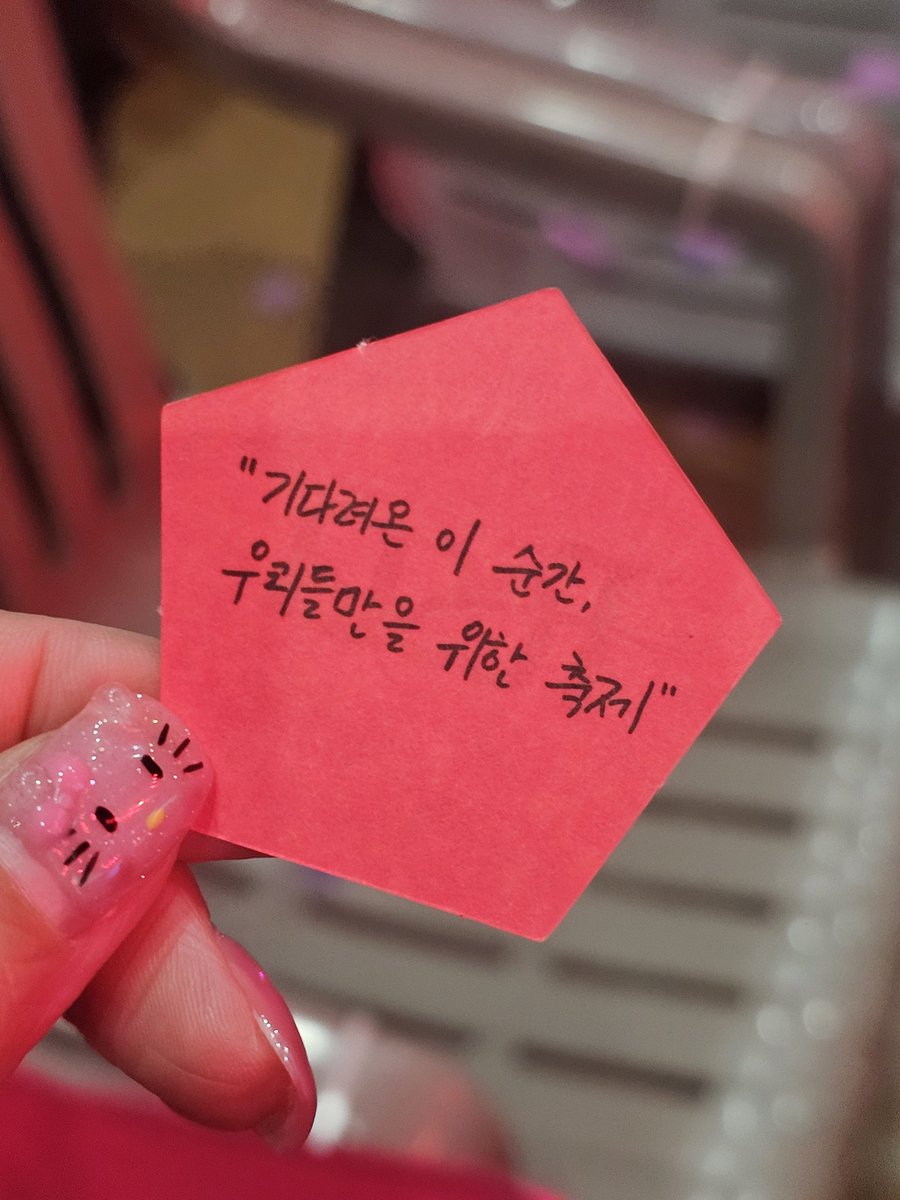 "기다려온 이 순간,
우리들만을 위한 축제"